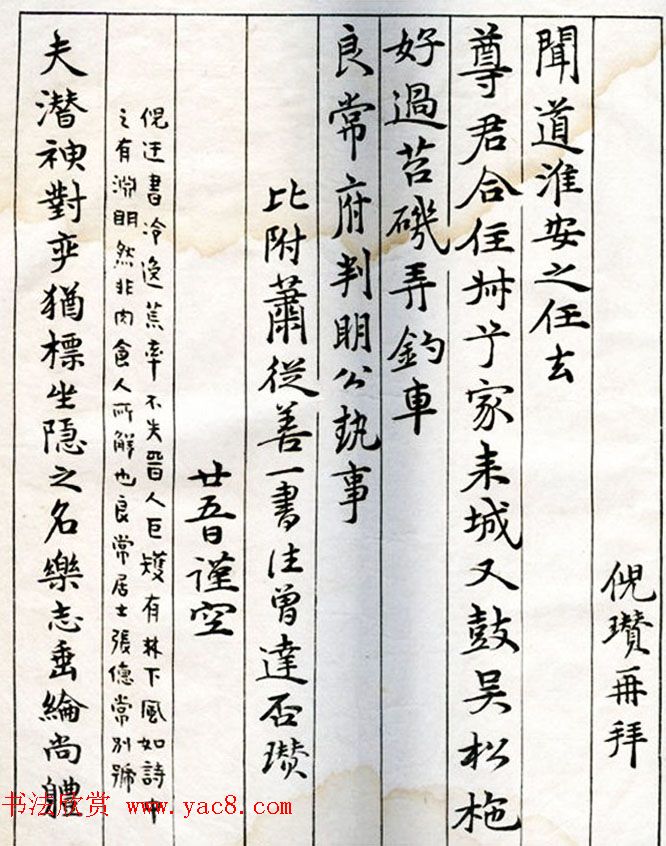 倪瓚再拜
聞道淮安之任去
尊君合住家未城又鼓吴松柂
好過苕磯弄釣車
良常府判明公執事
比附蕭從善一書往曾達否瓚
廿五日謹空
倪迂書冷逸蕉率不失晉人巨矱有林下風如詩中
之有淵明然非肉食人所解也良常居士張德常別號
夫潜神對弈猶標坐隐之名樂志垂綸尚體
书法欣赏 www.yac8.com